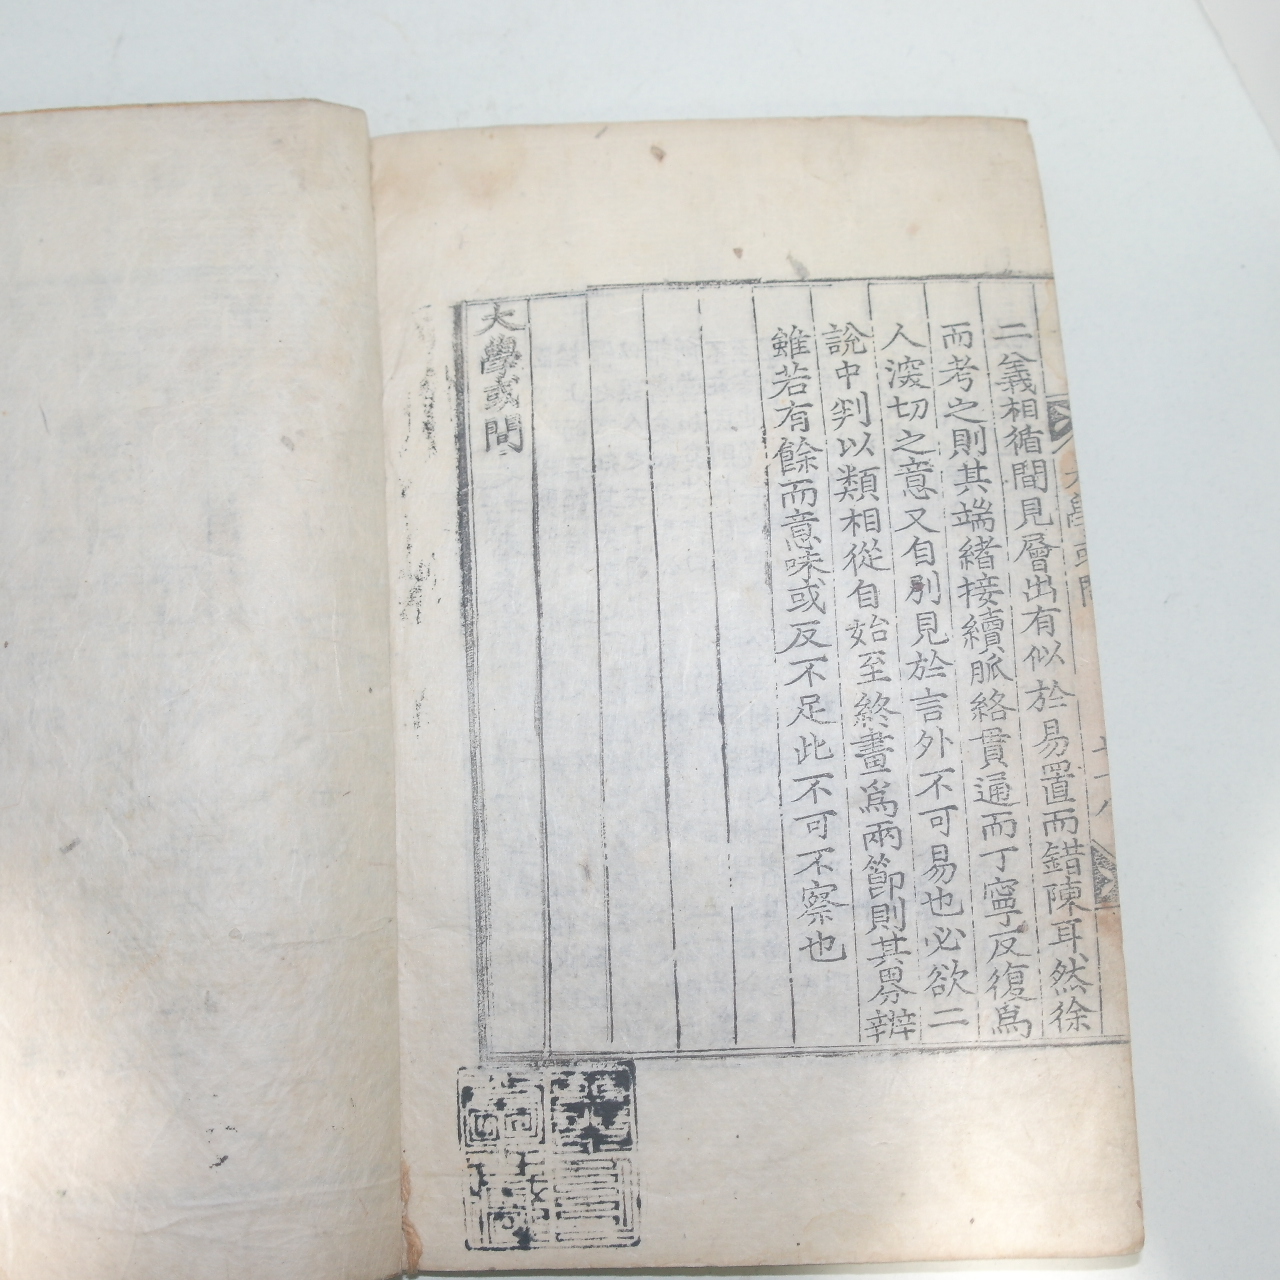 二義相循間見層出有似於易置而錯陳耳然徐
而考之則其端緒接續脈絡貫通而丁寧反復爲
人深切之意又自別見於言外不可易也必欲二
說中判以類相從自始至終畫爲兩節則其界辨
雖若有餘而意味或反不足此不可不察也
大學或問
大學或問